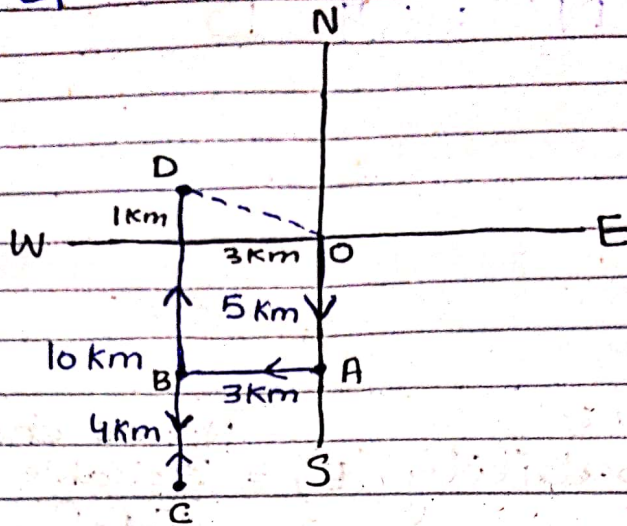 N
D
1km
W
3km
O
E
5 km
10 km
B
A
3km
4km
S
C